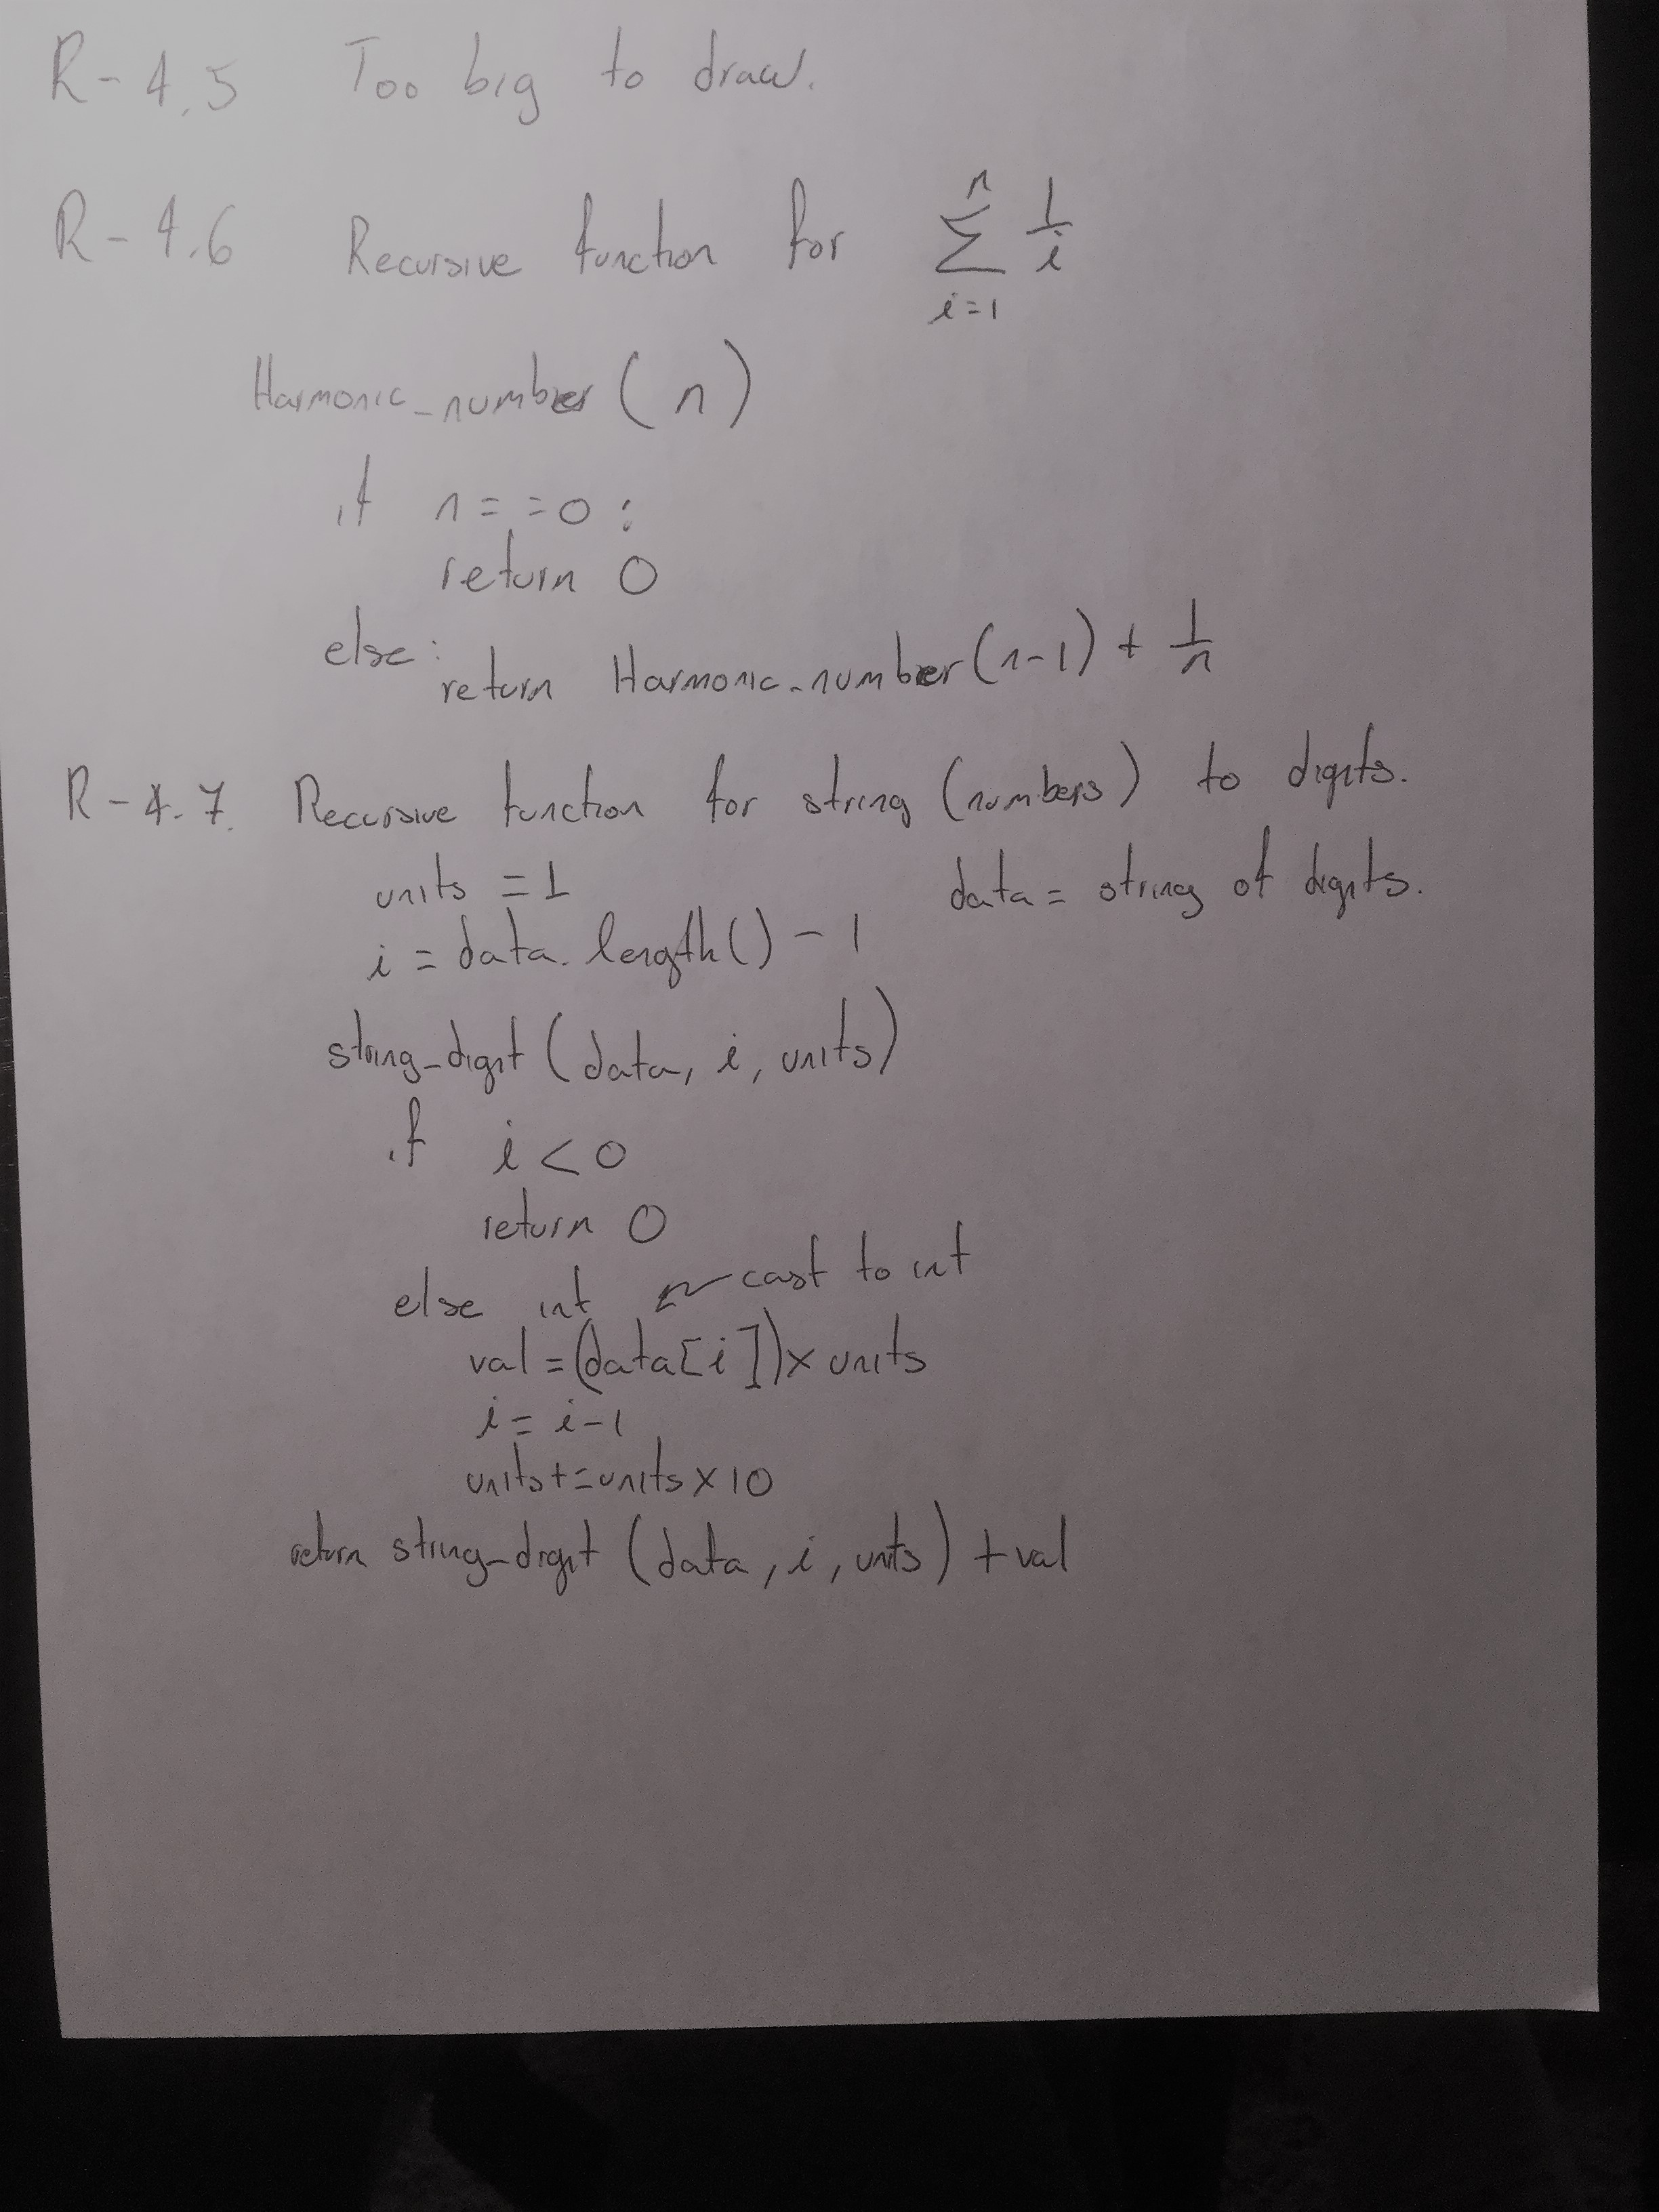 R-4.5 Too big to draw.
R-4.6 Recursive function for \sum_{i=1}^{n} \frac{1}{i}
Harmonic_number(n)
if n==0:
return 0
else:
return Harmonic_number(n-1) + \frac{1}{n}
R-4.7. Recursive function for string (numbers) to digits.
units = 1 data = string of digits.
i = data.length() - 1
string_digit(data, i, units)
if i < 0
return 0
else int cast to int
val = (data[i]) x units
i = i-1
units += units x 10
return string_digit (data, i, units) + val